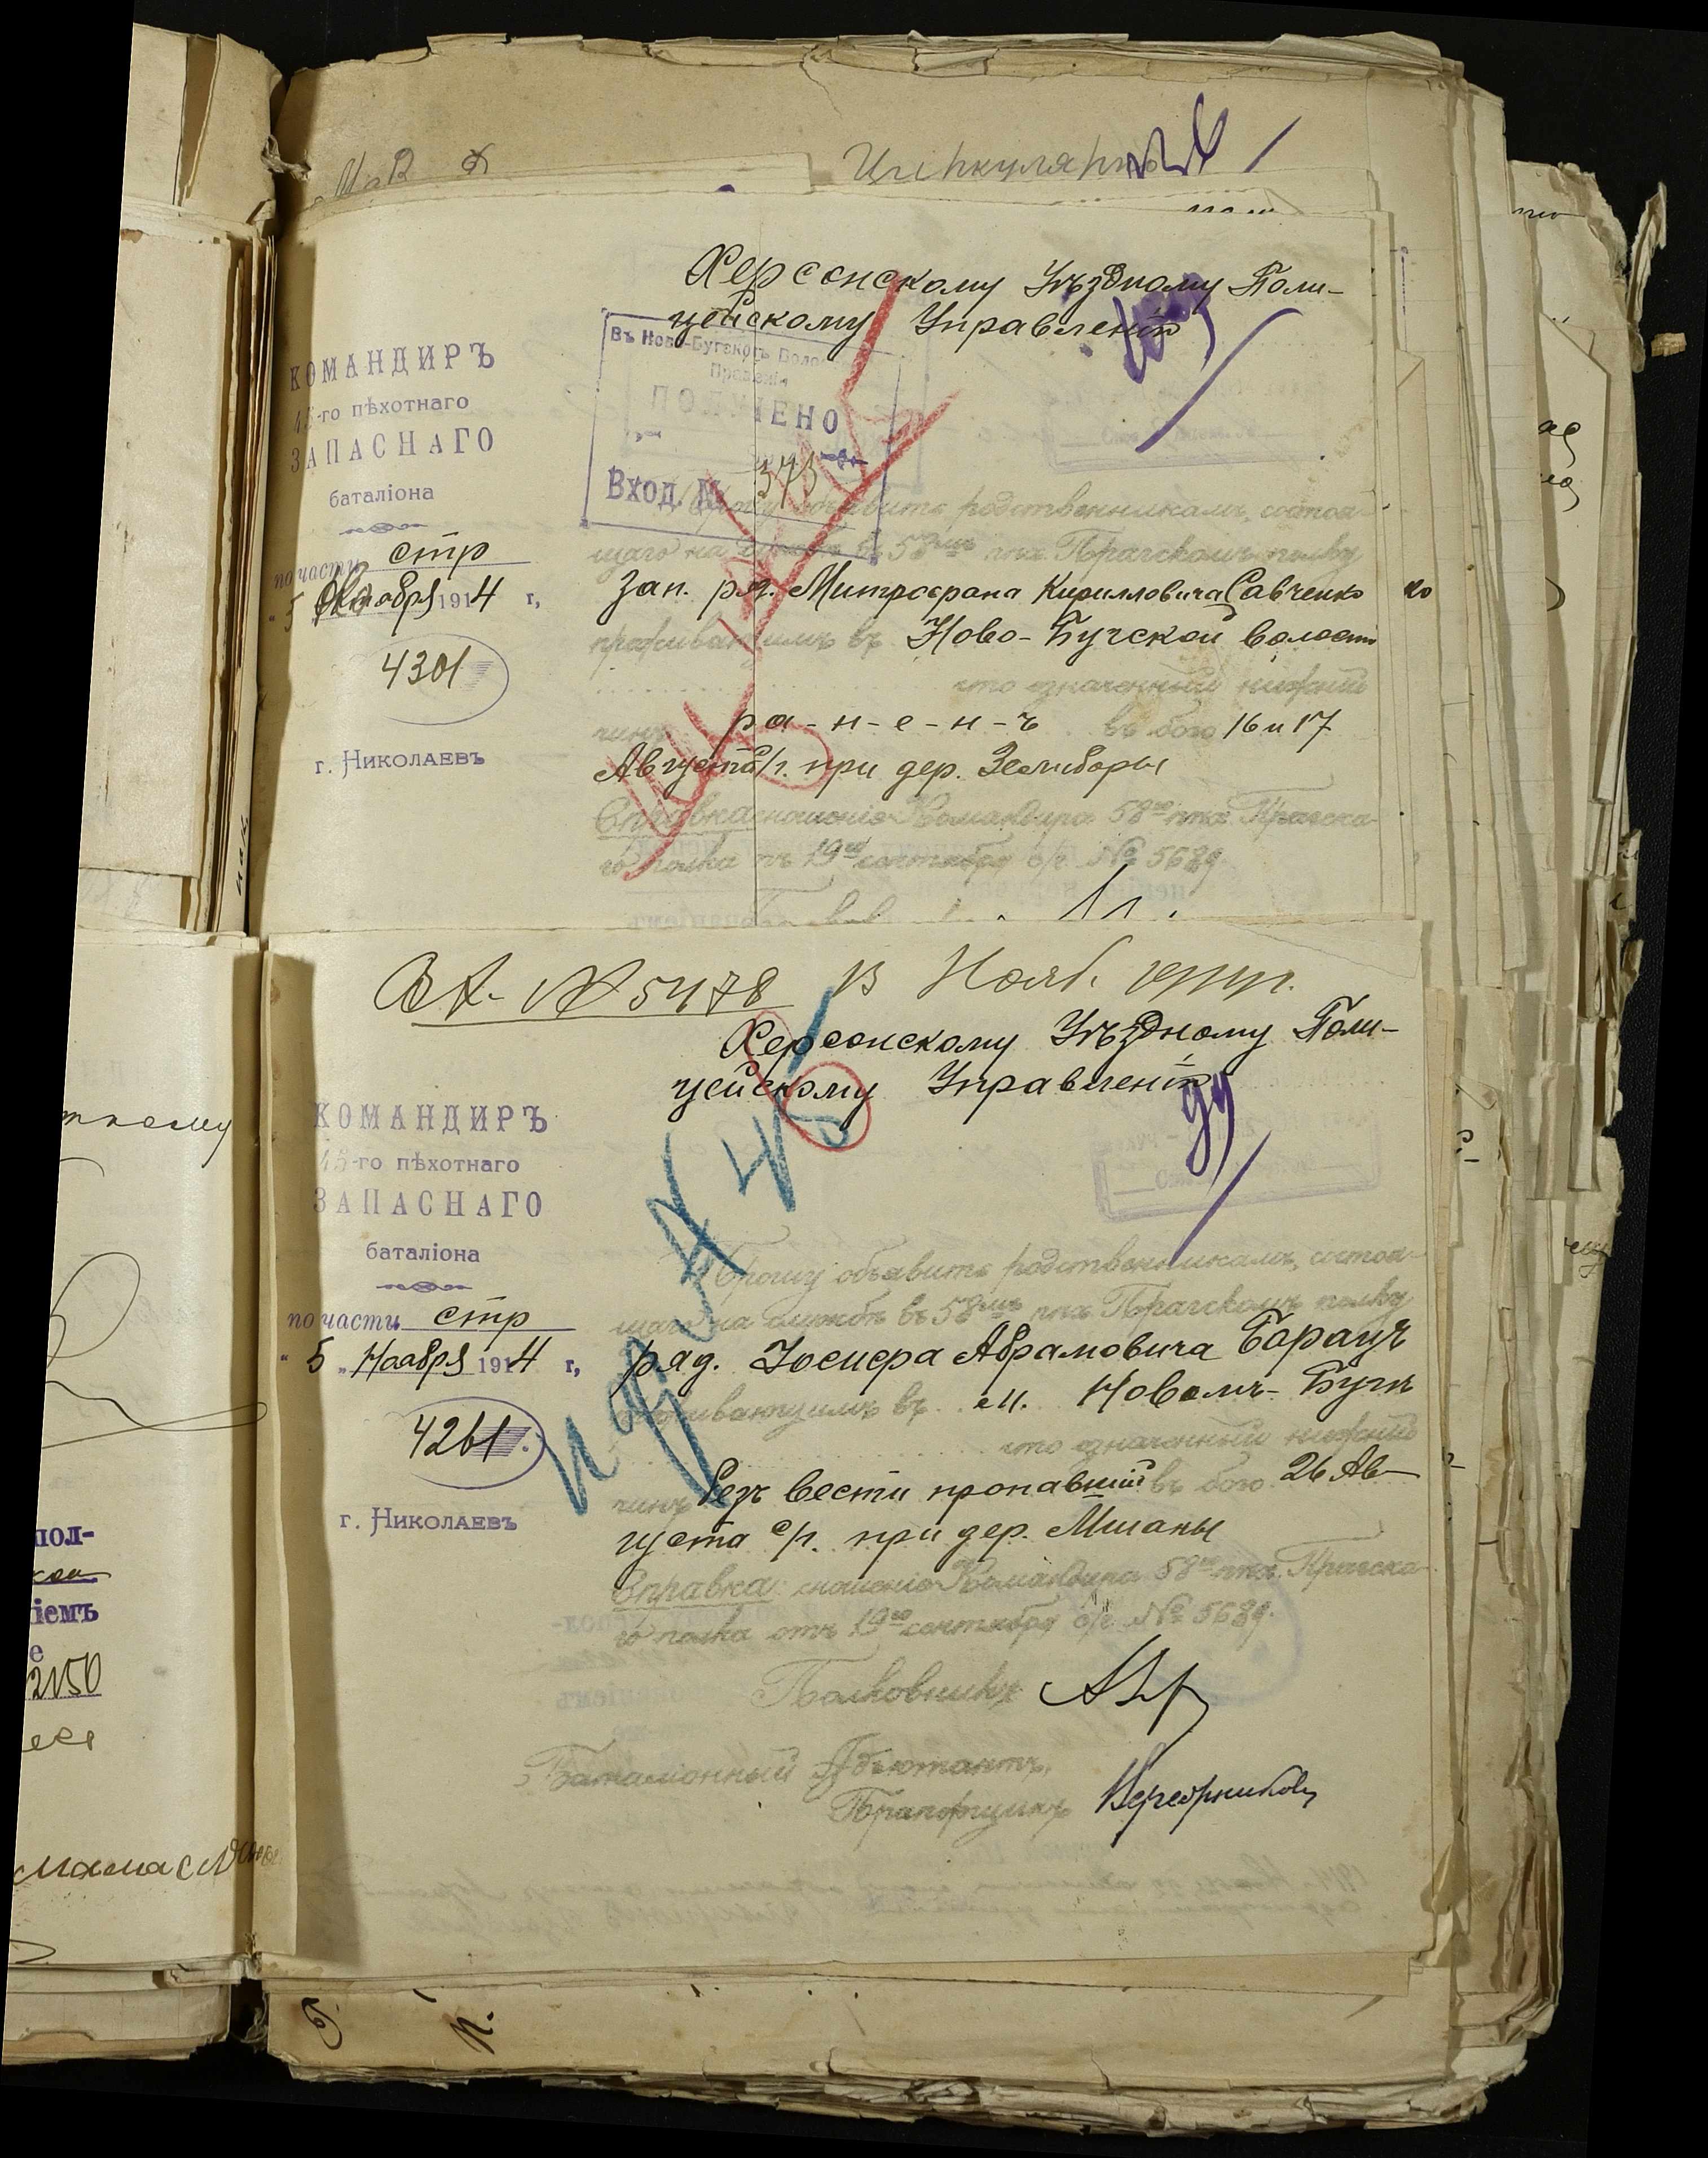 М. В. Д.
Циркулярно
Херсонскому Уѣздному Поли-
цейскому Управленію
КОМАНДИРЪ
45-го пѣхотнаго
ЗАПАСНАГО
баталіона
по части стр
"5 Октября 1914 г,
4301
г. Николаевъ
Въ Ново-Бугском Воло
Правленіи
ПОЛУЧЕНО
Вход. № 373
Прошу объявить родственникамъ, состоя-
щаго на службѣ въ 58мъ пѣх Прагскомъ полку
Зап. ряд. Митрофана Кирилловича Савченко
проживающимъ въ Ново-Бугской волости
что означенный нижній
чинъ ра-н-е-н-ъ въ бою 16 и 17
Августа с/г. при дер. Зелиборы
Справка: сношеніе Командира 58го пѣх. Прагска-
го полка отъ 19го сентября с/г. № 5689.
Вх. № 5478 13 Нояб. 1914 г.
Херсонскому Уѣздному Поли-
цейскому Управленію
КОМАНДИРЪ
45-го пѣхотнаго
ЗАПАСНАГО
баталіона
по части стр
"5" Ноября 1914 г,
4261
г. Николаевъ
Прошу объявить родственникамъ, состоя-
щаго на службѣ въ 58мъ пѣх Прагскомъ полку
ряд. Іосифа Абрамовича Барацъ
проживающимъ въ м. Новомъ-Бугѣ
что означенный нижній
чинъ безъ вести пропавшій въ бою 26 Ав-
густа с/г. при дер. Мшаны
Справка: сношеніе Командира 58го пѣх. Прагска-
го полка отъ 19го сентября с/г. № 5689.
Полковникъ
Баталіонный Адъютантъ,
Прапорщикъ
пол-
іемъ
е
2150